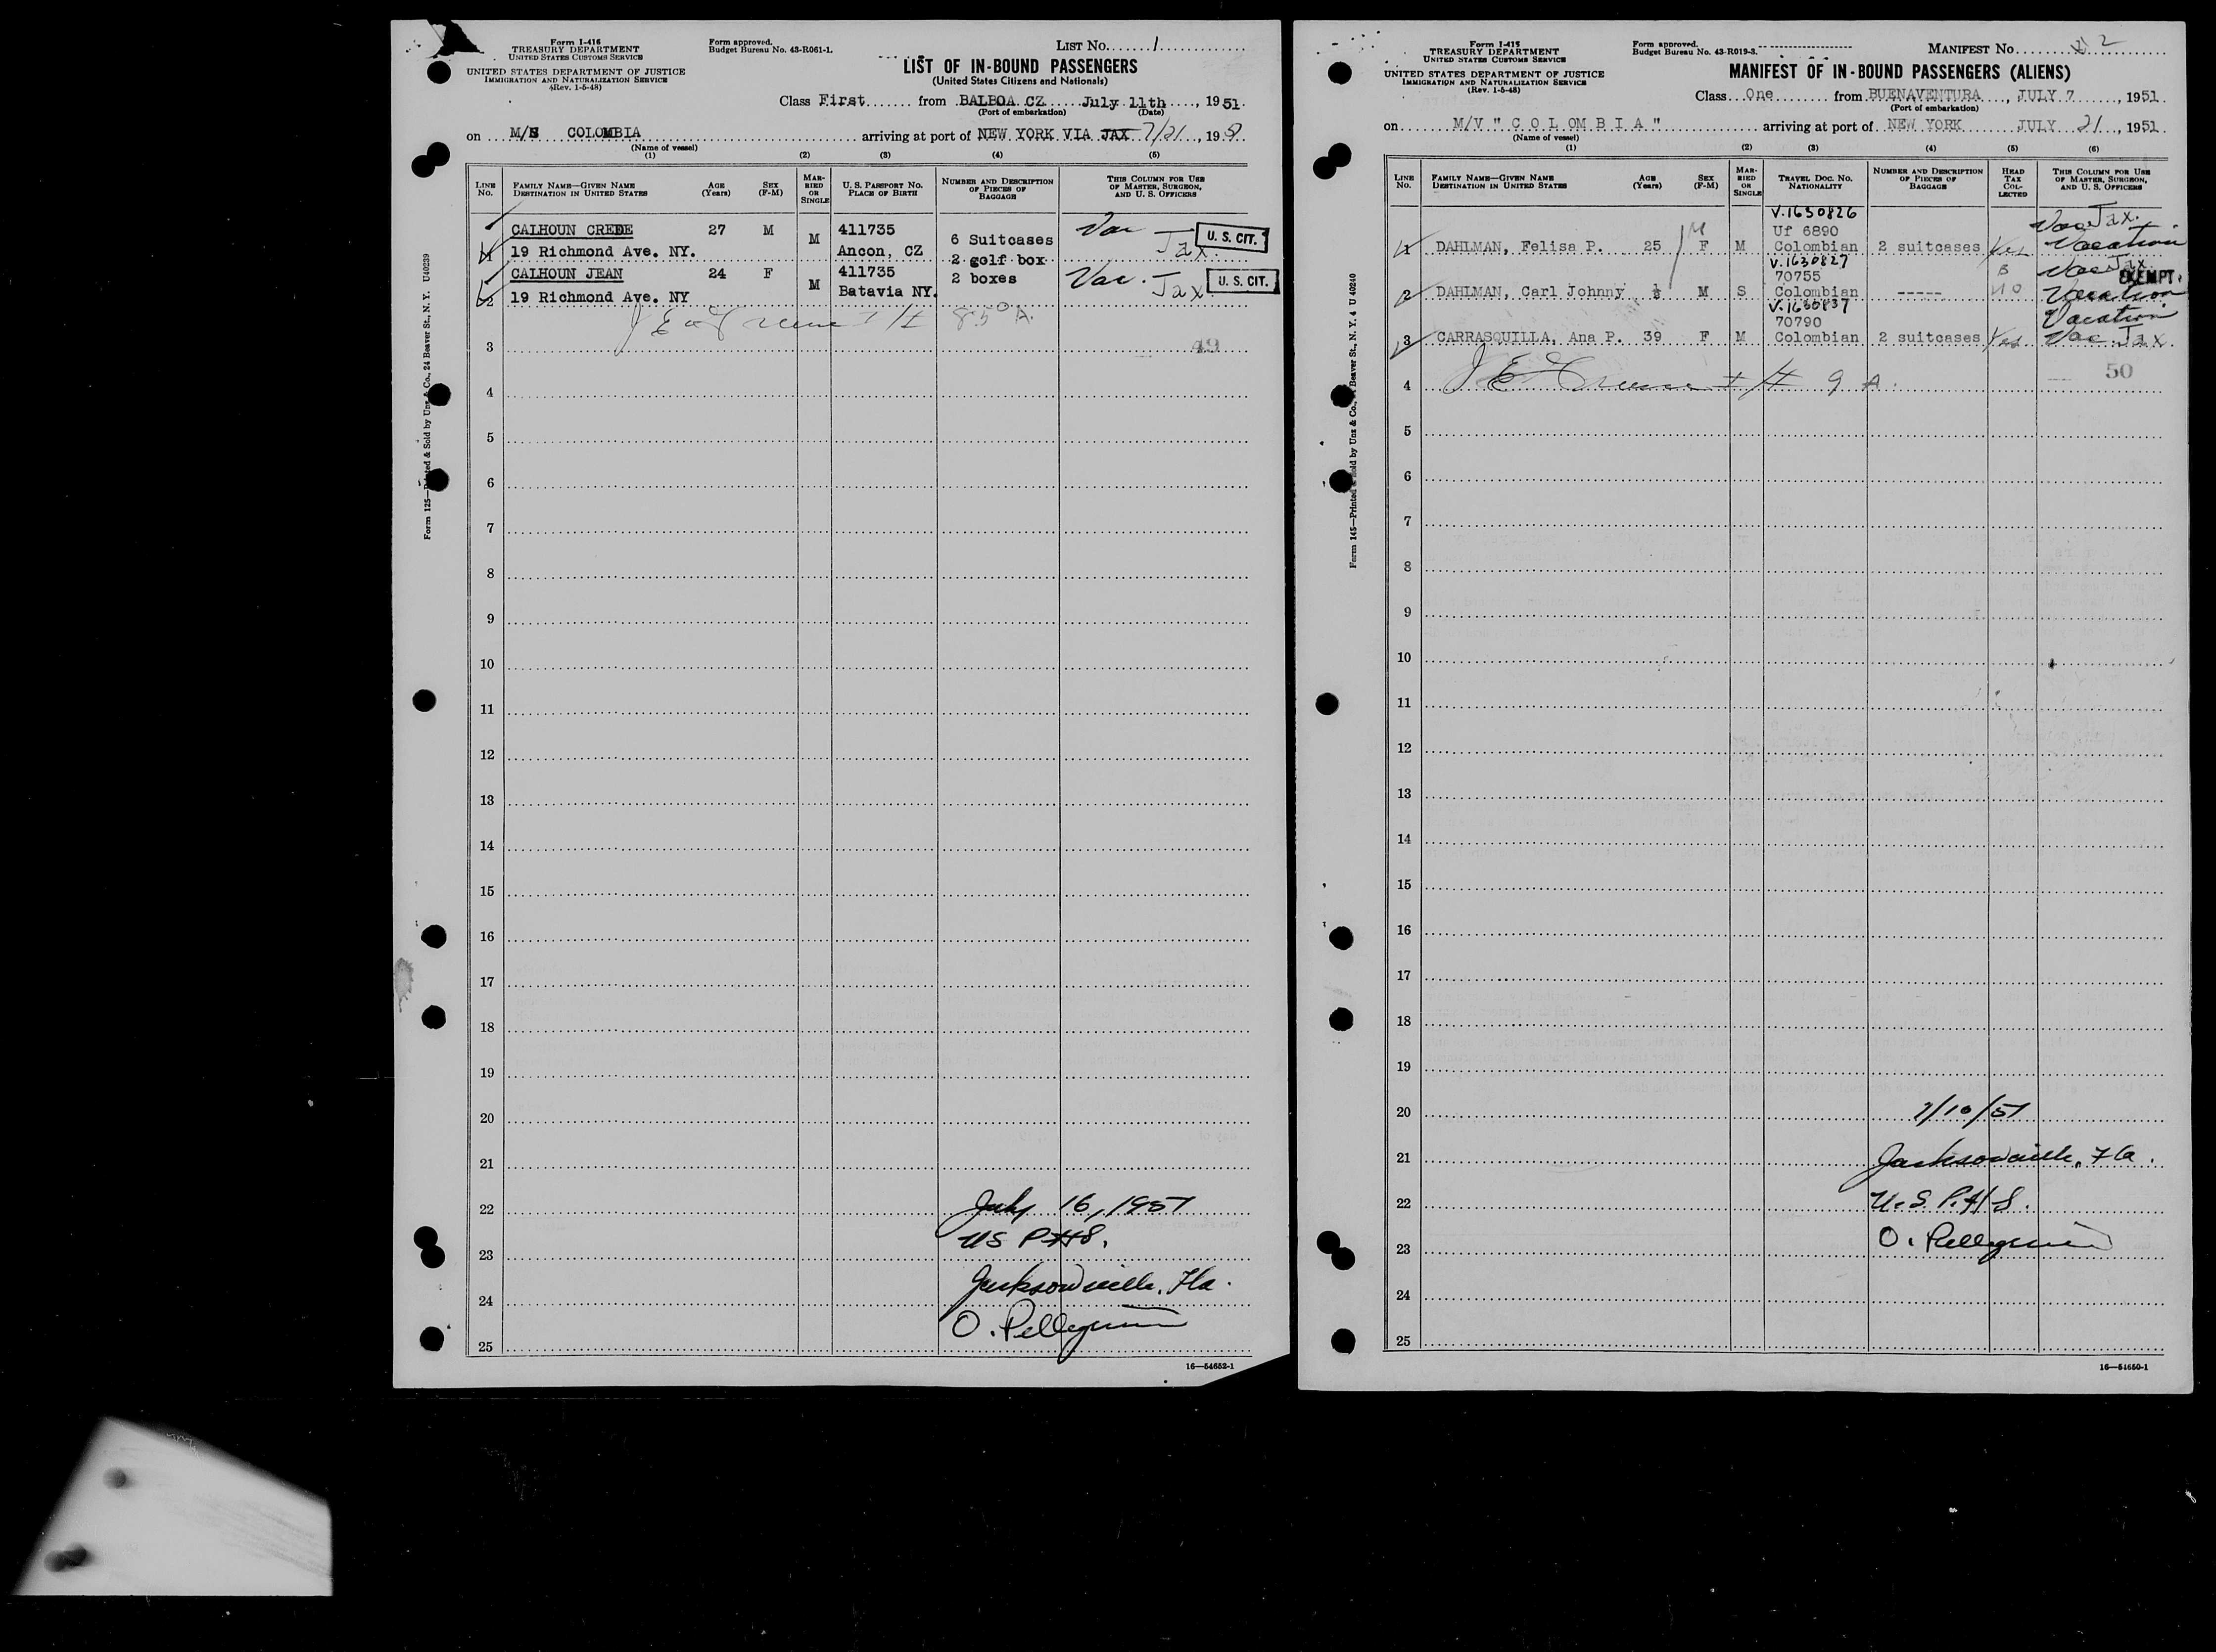 Form I-416
TREASURY DEPARTMENT
UNITED STATES CUSTOMS SERVICE
UNITED STATES DEPARTMENT OF JUSTICE
IMMIGRATION AND NATURALIZATION SERVICE
(Rev. 1-5-48)
Form approved.
Budget Bureau No. 43-R061-1.
LIST No. 1
LIST OF IN-BOUND PASSENGERS
(United States Citizens and Nationals)
Class First from BALBOA CZ July 11th, 1951
(Port of embarkation) (Date)
on M/S COLOMBIA arriving at port of NEW YORK VIA JAX 7/21, 19
(Name of vessel)
(1) (2) (3) (4) (5)
LINE No. FAMILY NAME—GIVEN NAME DESTINATION IN UNITED STATES AGE (Years) SEX (F-M) MARRIED OR SINGLE U. S. PASSPORT NO. PLACE OF BIRTH NUMBER AND DESCRIPTION OF PIECES OF BAGGAGE THIS COLUMN FOR USE OF MASTER, SURGEON, AND U. S. OFFICERS
CALHOUN CREDE 27 M M 411735 6 Suitcases Vac Jax. U. S. CIT.
1 19 Richmond Ave. NY. Ancon, CZ 2 golf box
CALHOUN JEAN 24 F M 411735 2 boxes Vac. Jax. U. S. CIT.
2 19 Richmond Ave. NY Batavia NY.
3 49
4
5
6
7
8
9
10
11
12
13
14
15
16
17
18
19
20
21
22 July 16, 1951
23 US PHS.
24 Jacksonville, Fla.
O. Pellegrini
25
16—54652-1
Form 125—Printed & Sold by Unz & Co., 24 Beaver St., N. Y. U40239
Form I-415
TREASURY DEPARTMENT
UNITED STATES CUSTOMS SERVICE
UNITED STATES DEPARTMENT OF JUSTICE
IMMIGRATION AND NATURALIZATION SERVICE
(Rev. 1-5-48)
Form approved.
Budget Bureau No. 43-R019-3.
MANIFEST NO. 2
MANIFEST OF IN-BOUND PASSENGERS (ALIENS)
Class One from BUENAVENTURA, JULY 7, 1951
(Port of embarkation)
on M/V "C O L O M B I A" arriving at port of NEW YORK JULY 21, 1951
(Name of vessel)
(1) (2) (3) (4) (5) (6)
LINE No. FAMILY NAME—GIVEN NAME DESTINATION IN UNITED STATES AGE (Years) SEX (F-M) MARRIED OR SINGLE TRAVEL DOC. NO. NATIONALITY NUMBER AND DESCRIPTION OF PIECES OF BAGGAGE HEAD TAX COLLECTED THIS COLUMN FOR USE OF MASTER, SURGEON, AND U. S. OFFICERS
V.1630826 Vac Jax.
Uf 6890
1 DAHLMAN, Felisa P. 25 F M Colombian 2 suitcases Yes Vacation
V.1630827 Vac Jax
70755 EXEMPT.
2 DAHLMAN, Carl Johnny ½ M S Colombian ----- NO Vacation
V.1630837 Vacation
70790
3 CARRASQUILLA, Ana P. 39 F M Colombian 2 suitcases Yes Vac. Jax.
4 50
5
6
7
8
9
10
11
12
13
14
15
16
17
18
19
20 7/16/51
21 Jacksonville, Fla.
22 U.S. P.H.S.
23 O. Pellegrini
24
25
16—54650-1
Form 145—Printed & Sold by Unz & Co., 24 Beaver St., N. Y. 4 U 40240